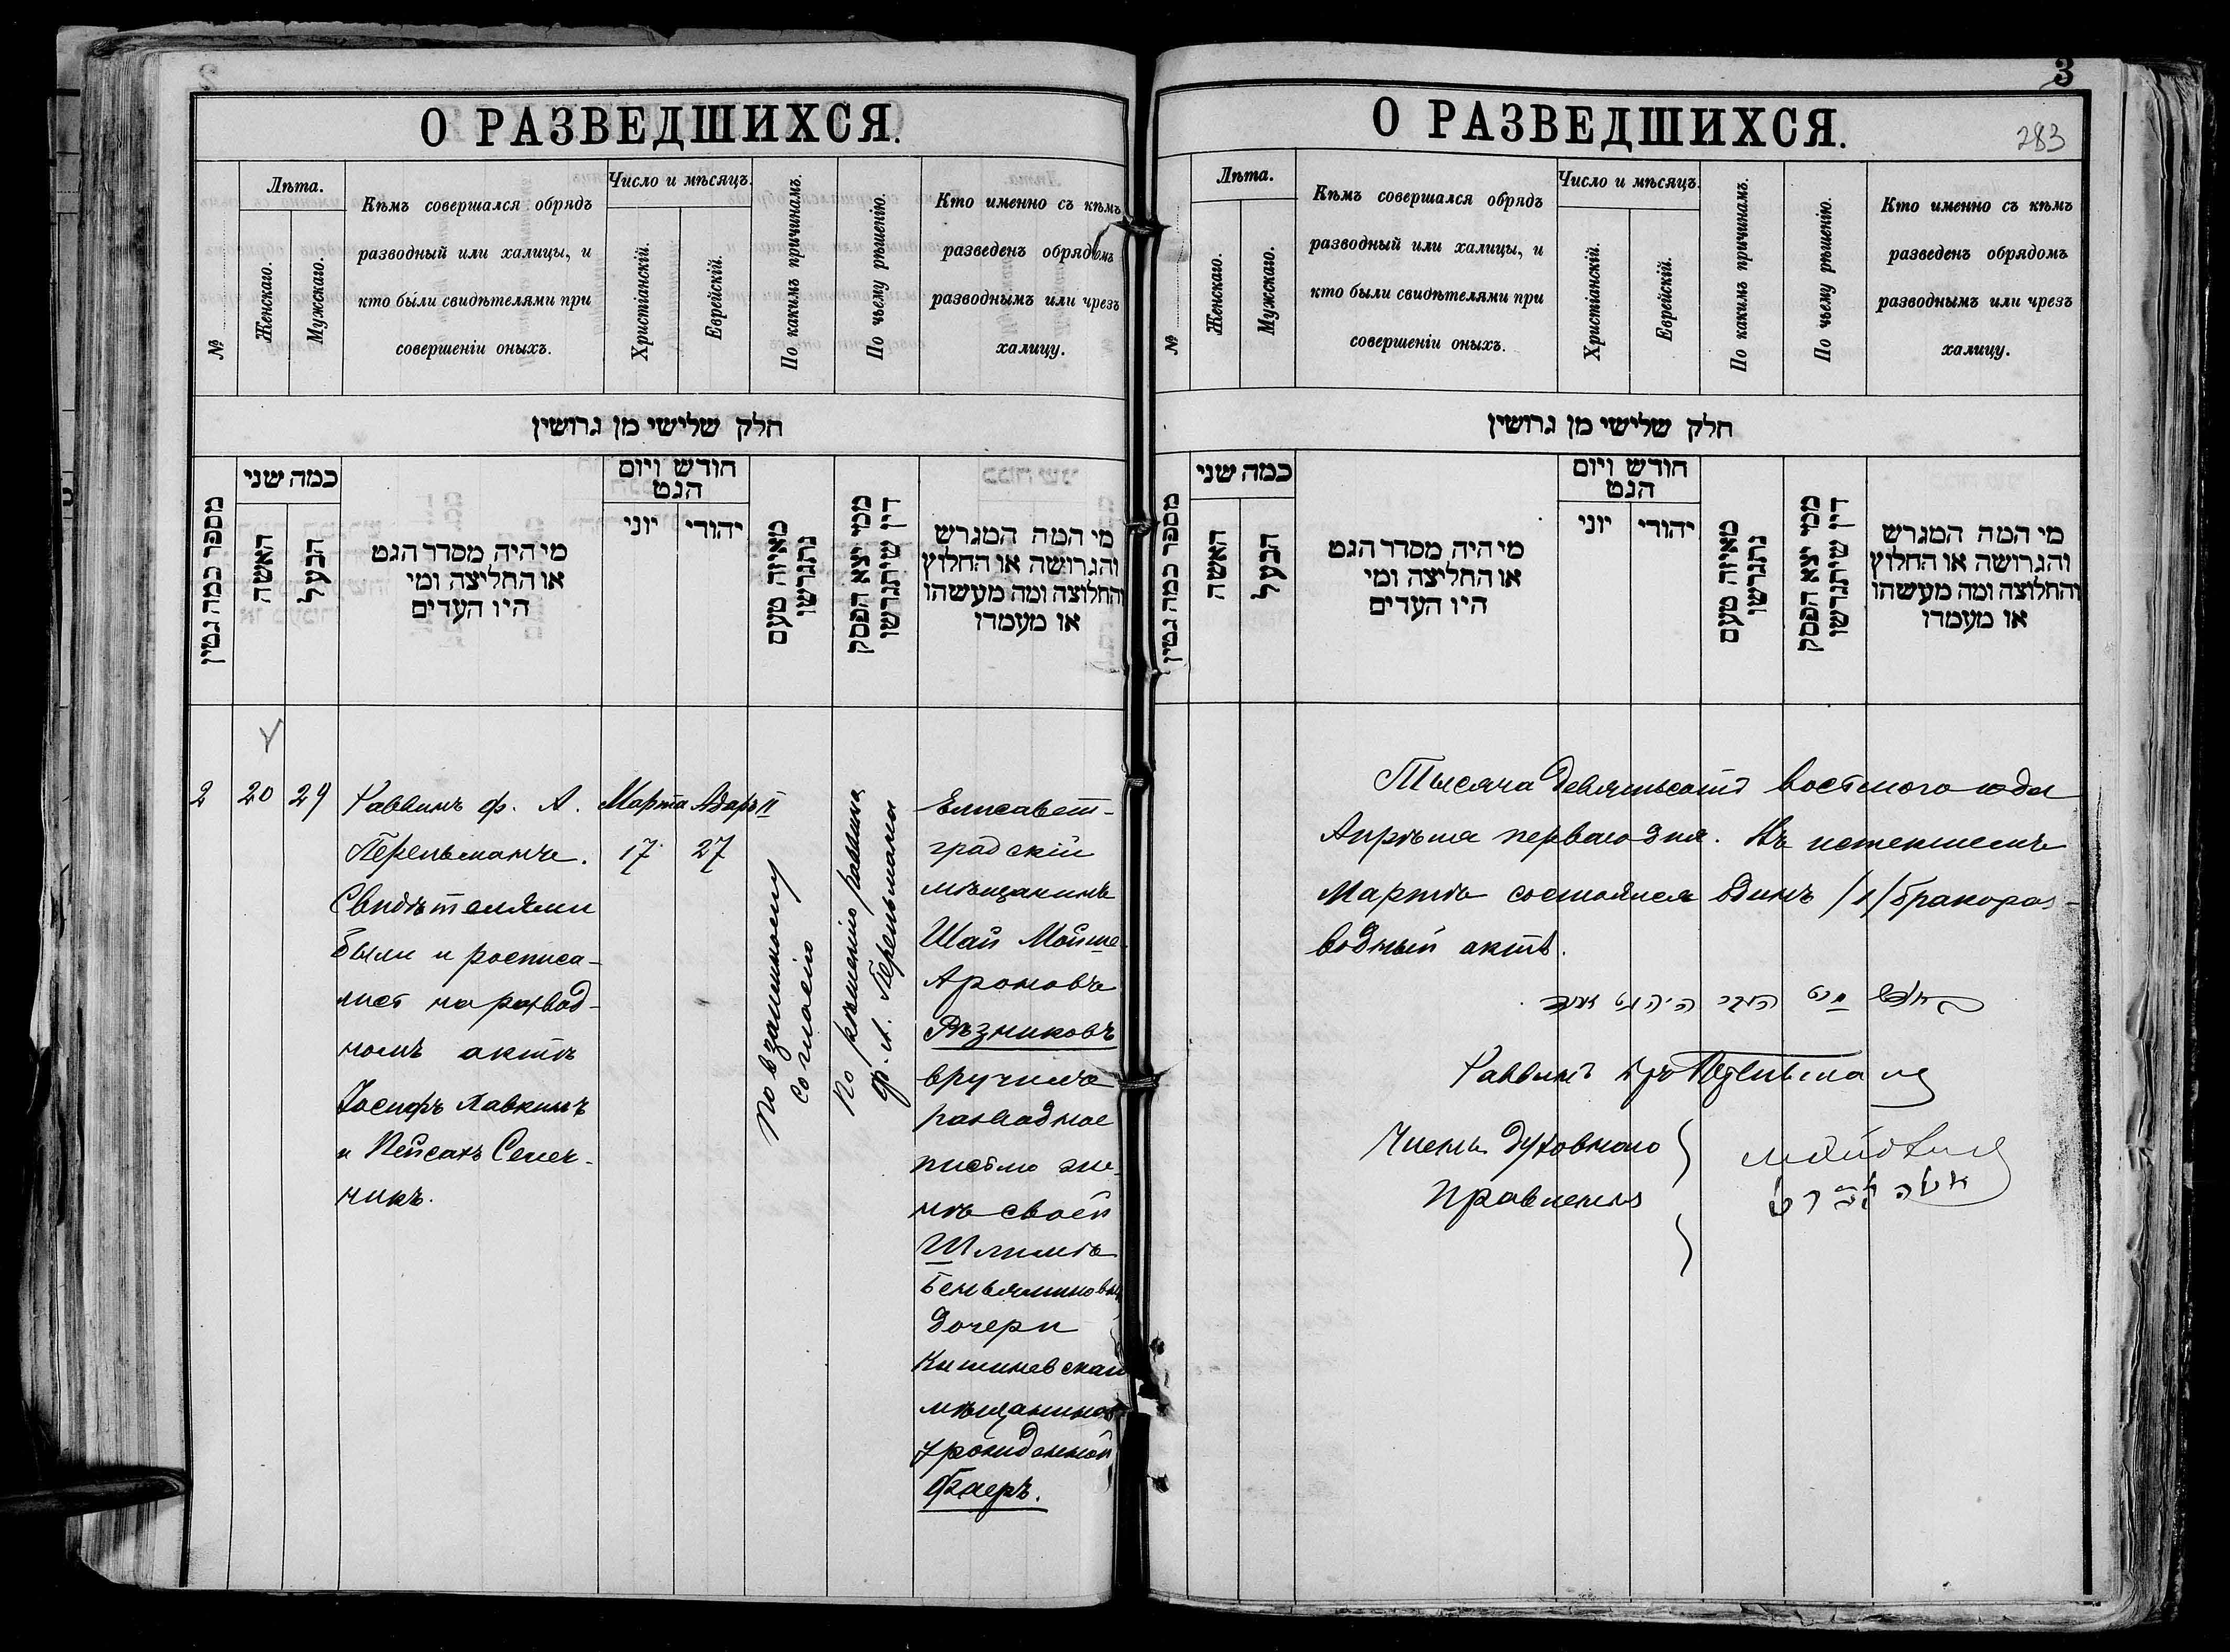 О РАЗВЕДШИХСЯ.
№
Лѣта.
Женскаго.
Мужскаго.
Кѣмъ совершался обрядъ
разводный или халицы, и
кто были свидѣтелями при
совершеніи оныхъ.
Число и мѣсяцъ.
Христіанскій.
Еврейскій.
По какимъ причинамъ.
По чьему рѣшенію.
Кто именно съ кѣмъ
разведенъ обрядомъ
разводнымъ или чрезъ
халицу.
חלק שלישי מן גרושין
מספר כמה גטין
כמה שני
האשה
הבעל
מי היה מסדר הגט
או החליצה ומי
היו העדים
חודש ויום
הגט
יוני
יהודי
מאיזה טעם
נתגרשו
ממי יצא הפסק
דין שיתגרשו
מי המה המגרש
והגרושה או החלוץ
והחלוצה ומה מעשהו
או מעמדו
2
20
29
Раввинъ ф. А.
Перельманъ.
Свидѣтелями
были и росписа-
лись на развод-
номъ актѣ
Іосифъ Лавкинъ
и Пейсахъ Сенеч-
никъ.
Марта
17
Адаръ II
27
По взаимному
согласію
По рѣшенію раввина
ф. А. Перельмана
Елисавет-
градскій
мѣщанинъ
Шая Мойше
Ароновъ
Рѣзниковъ
вручилъ
разводное
письмо же-
нѣ своей
Шлимѣ
Беньяминовнѣ
дочери
Кишиневскаго
мѣщанина
урожденной
Фаеръ.
3
283
О РАЗВЕДШИХСЯ.
№
Лѣта.
Женскаго.
Мужскаго.
Кѣмъ совершался обрядъ
разводный или халицы, и
кто были свидѣтелями при
совершеніи оныхъ.
Число и мѣсяцъ.
Христіанскій.
Еврейскій.
По какимъ причинамъ.
По чьему рѣшенію.
Кто именно съ кѣмъ
разведенъ обрядомъ
разводнымъ или чрезъ
халицу.
חלק שלישי מן גרושין
מספר כמה גטין
כמה שני
האשה
הבעל
מי היה מסדר הגט
או החליצה ומי
היו העדים
חודש ויום
הגט
יוני
יהודי
מאיזה טעם
נתגרשו
ממי יצא הפסק
דין שיתגרשו
מי המה המגרש
והגרושה או החלוץ
והחלוצה ומה מעשהו
או מעמדו
Тысяча девятьсотъ восьмого года
Апрѣля перваго дня. Въ истекшемъ
Мартѣ состоялся одинъ /1/ бракораз-
водный актъ.
Раввинъ Ф. Перельманъ
Члены духовнаго
Правленія